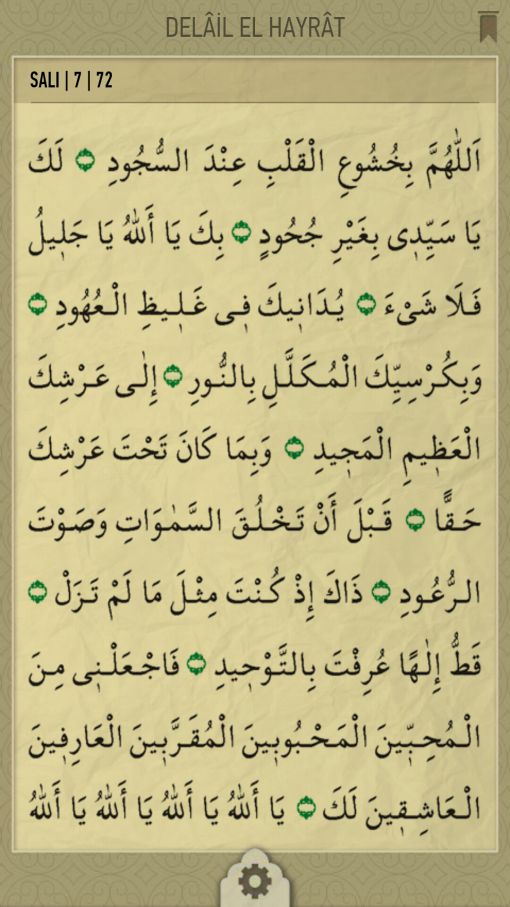 DELÂİL EL HAYRÂT
SALI | 7 | 72
اَللّٰهُمَّ بِخُشُوعِ الْقَلْبِ عِنْدَ السُّجُودِ ۝ لَكَ
يَا سَيِّدِى بِغَيْرِ جُحُودٍ ۝ بِكَ يَا أَللّٰهُ يَا جَلِيلُ
فَلَا شَىْءَ ۝ يُدَانِيكَ فِى غَلِيظِ الْعُهُودِ ۝
وَبِكُرْسِيِّكَ الْمُكَلَّلِ بِالنُّورِ ۝ إِلٰى عَرْشِكَ
الْعَظِيمِ الْمَجِيدِ ۝ وَبِمَا كَانَ تَحْتَ عَرْشِكَ
حَقًّا ۝ قَبْلَ أَنْ تَخْلُقَ السَّمٰوَاتِ وَصَوْتَ
الرُّعُودِ ۝ ذَاكَ إِذْ كُنْتَ مِثْلَ مَا لَمْ تَزَلْ ۝
قَطُّ إِلٰهًا عُرِفْتَ بِالتَّوْحِيدِ ۝ فَاجْعَلْنِى مِنَ
الْمُحِبِّينَ الْمَحْبُوبِينَ الْمُقَرَّبِينَ الْعَارِفِينَ
الْعَاشِقِينَ لَكَ ۝ يَا أَللّٰهُ يَا أَللّٰهُ يَا أَللّٰهُ يَا أَللّٰهُ